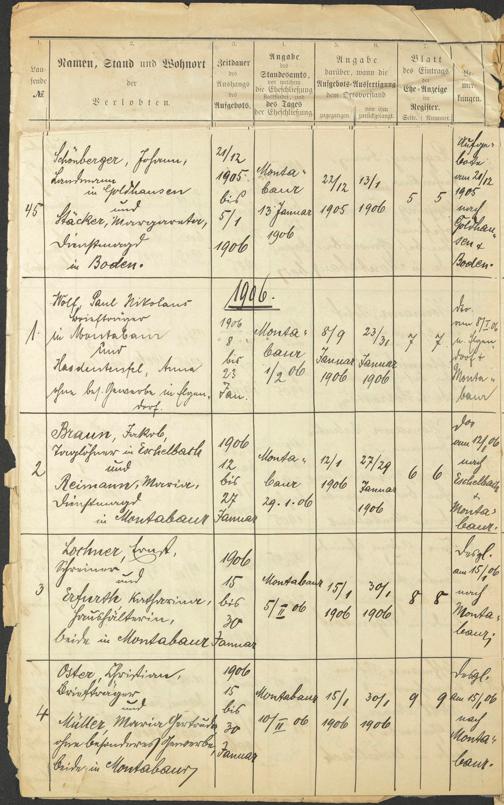 1.
2.
3.
4.
5.
6.
7.
Lau-
fende
№
Namen, Stand und Wohnort
der
Verlobten.
Zeitdauer
des
Aushangs
des
Aufgebots.
Angabe
des
Standesamts,
vor welchem
die Eheschließung
stattfindet, und
des Tages
der Eheschließung.
Angabe
darüber, wann die
Aufgebots-Ausfertigung
dem Ortsvorstand
zugegangen
von ihm
zurückgelangt.
Blatt
des Eintrags
der
Ehe-Anzeige
im
Register.
Seite. Nummer.
Be-
mer-
kungen.
45
Schönberger, Johann,
Landmann
in Goldhausen
und
Stäcker, Margareta,
Dienstmagd
in Boden.
21/12
1905
bis
5/1
1906
Monta-
baur
13 Januar
1906
22/12
1905
13/1
1906
5
5
Aufge-
bote
am 21/12
1905
nach
Goldhau-
sen &
Boden.
1906.
1.
Wolf, Paul Nikolaus
Briefträger
in Montabaur
und
Anna
ohne bes. Gewerbe in Elgen-
dorf.
1906
8
bis
23
Jan.
Monta-
baur
1/2 06
8/9
Januar
1906
Januar
1906
7
7
am 8/I 06
n. Elgen-
dorf &
Monta-
baur
2
Braun, Jakob,
Taglöhner in Eschelbach
und
Reimann, Maria,
Dienstmagd
in Montabaur
1906
12
bis
27
Januar
Monta-
baur
29.1.06
12/1
1906
27/29
Januar
1906
6
6
am 12/1 06
nach
Eschelbach
&
Monta-
baur.
3
Lochner, Ernst,
Schreiner
und
Erfurth Katharina,
Haushälterin,
beide in Montabaur
1906
15
bis
30
Januar
Montabaur
5/II 06
15/1
1906
30/1
1906
8
8
Desgl.
am 15/1 06
nach
Monta-
baur;
4
Oster, Christian,
Briefträger
und
Müller, Maria Gertrude
ohne besonderes Gewerbe,
beide in Montabaur
1906
15
bis
30
Januar
Montabaur
10/II 06
15/1
1906
30/1
1906
9
9
Desgl.
am 15/1 06
nach
Monta-
baur.